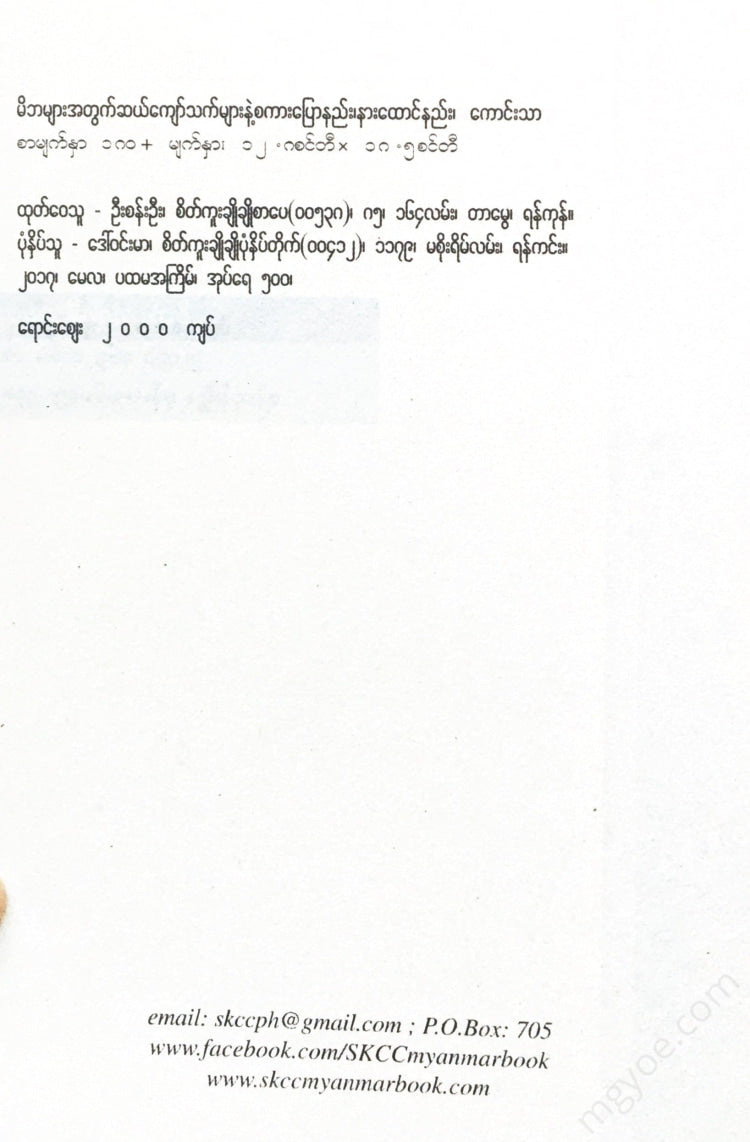 မိဘများအတွက်ဆယ်ကျော်သက်များနဲ့စကားပြောနည်း၊နားထောင်နည်း၊ ကောင်းသာ
စာမျက်နှာ ၁၈၀+ မျက်နှာ၊ ၁၂.၈စင်တီ× ၁၈.၅စင်တီ
ထုတ်ဝေသူ - ဦးစန်းဦး၊ စိတ်ကူးချိုချိုစာပေ(၀၀၅၃၈)၊ ၈၅၊ ၁၆၄လမ်း၊ တာမွေ၊ ရန်ကုန်။
ပုံနှိပ်သူ - ဒေါ်ဝင်းမာ၊ စိတ်ကူးချိုချိုပုံနှိပ်တိုက်(၀၀၄၁၂)၊ ၁၁၇၉၊ မစိုးရိမ်လမ်း၊ ရန်ကင်း။
၂၀၁၇၊ မေလ၊ ပထမအကြိမ်၊ အုပ်ရေ ၅၀၀၊
ရောင်းဈေး ၂၀၀၀ ကျပ်
email: skccph@gmail.com ; P.O.Box: 705
www.facebook.com/SKCCmyanmarbook
www.skccmyanmarbook.com
mgyoe.com